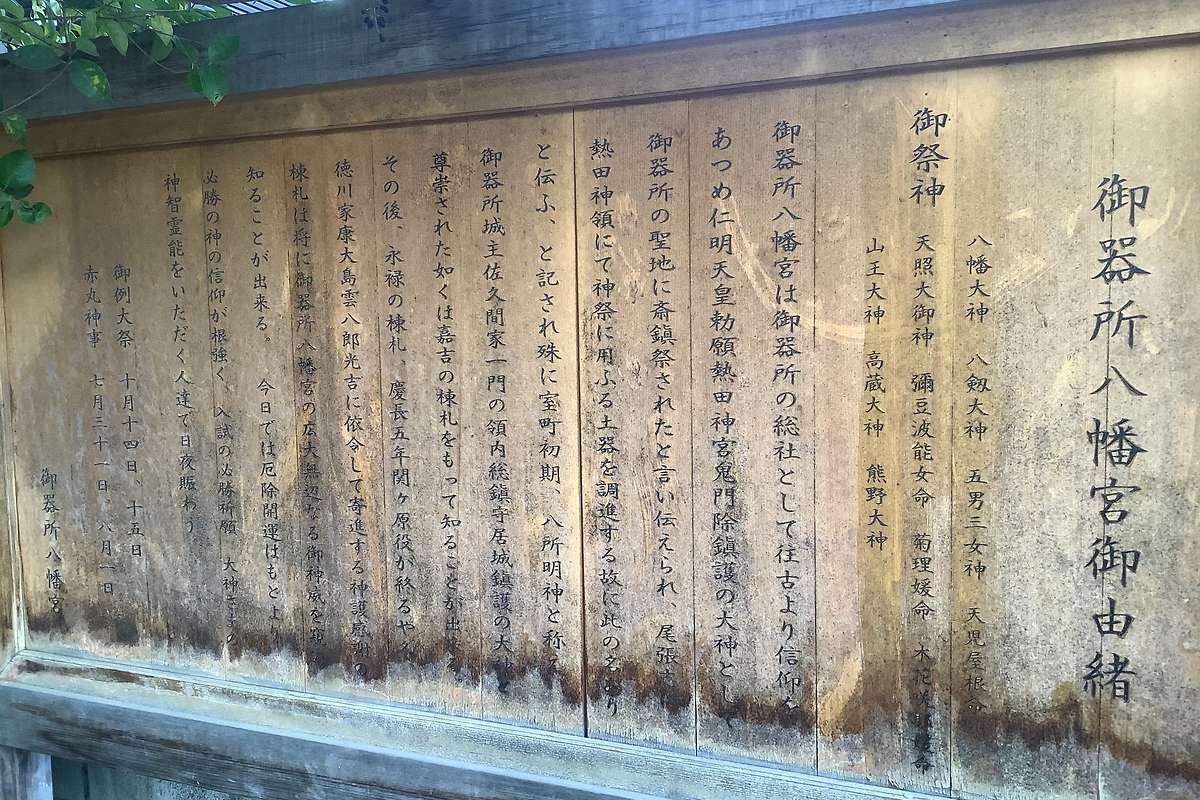 御器所八幡宮御由緒
八幡大神 八劔大神 五男三女神 天児屋根命
御祭神 天照大御神 彌豆波能女命 菊理媛命 木花
山王大神 高蔵大神 熊野大神
御器所八幡宮は御器所の総社として往古より信仰を
あつめ仁明天皇勅願熱田神宮鬼門除鎮護の大神とし
御器所の聖地に斎鎮祭されたと言い伝えられ、尾張
熱田神領にて神祭に用ふる土器を調進する故に此の名あり
と伝ふ、と記され殊に室町初期、八所明神と称
御器所城主佐久間家一門の領内総鎮守居城鎮護の大神と
尊崇された如くは嘉吉の棟札をもって知ることが出
その後、永禄の棟札、慶長五年関ヶ原役が終るや
徳川家康大島雲八郎光吉に依令して寄進する神護感謝の
棟札は将に御器所八幡宮の広大無辺なる御神威を
知ることが出来る。 今日では厄除開運はもとより
必勝の神の信仰が根強く、入試の必勝祈願 大神さまの
神智霊能をいただく人達で日夜賑わう
御例大祭 十月十四日、十五日
赤丸神事 七月三十一日、八月一日
御器所八幡宮